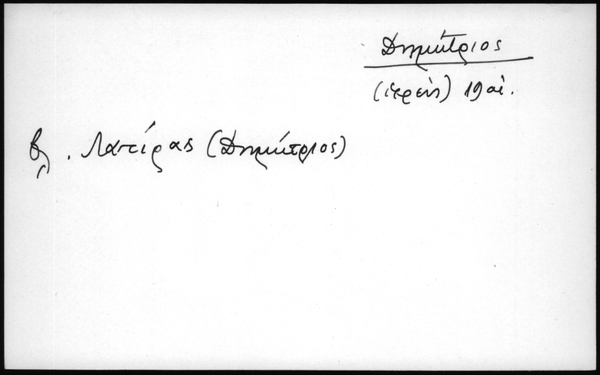 Δημήτριος
(ιερεύς) 19 αἰ.
βλ. Λατίρας (Δημήτριος)